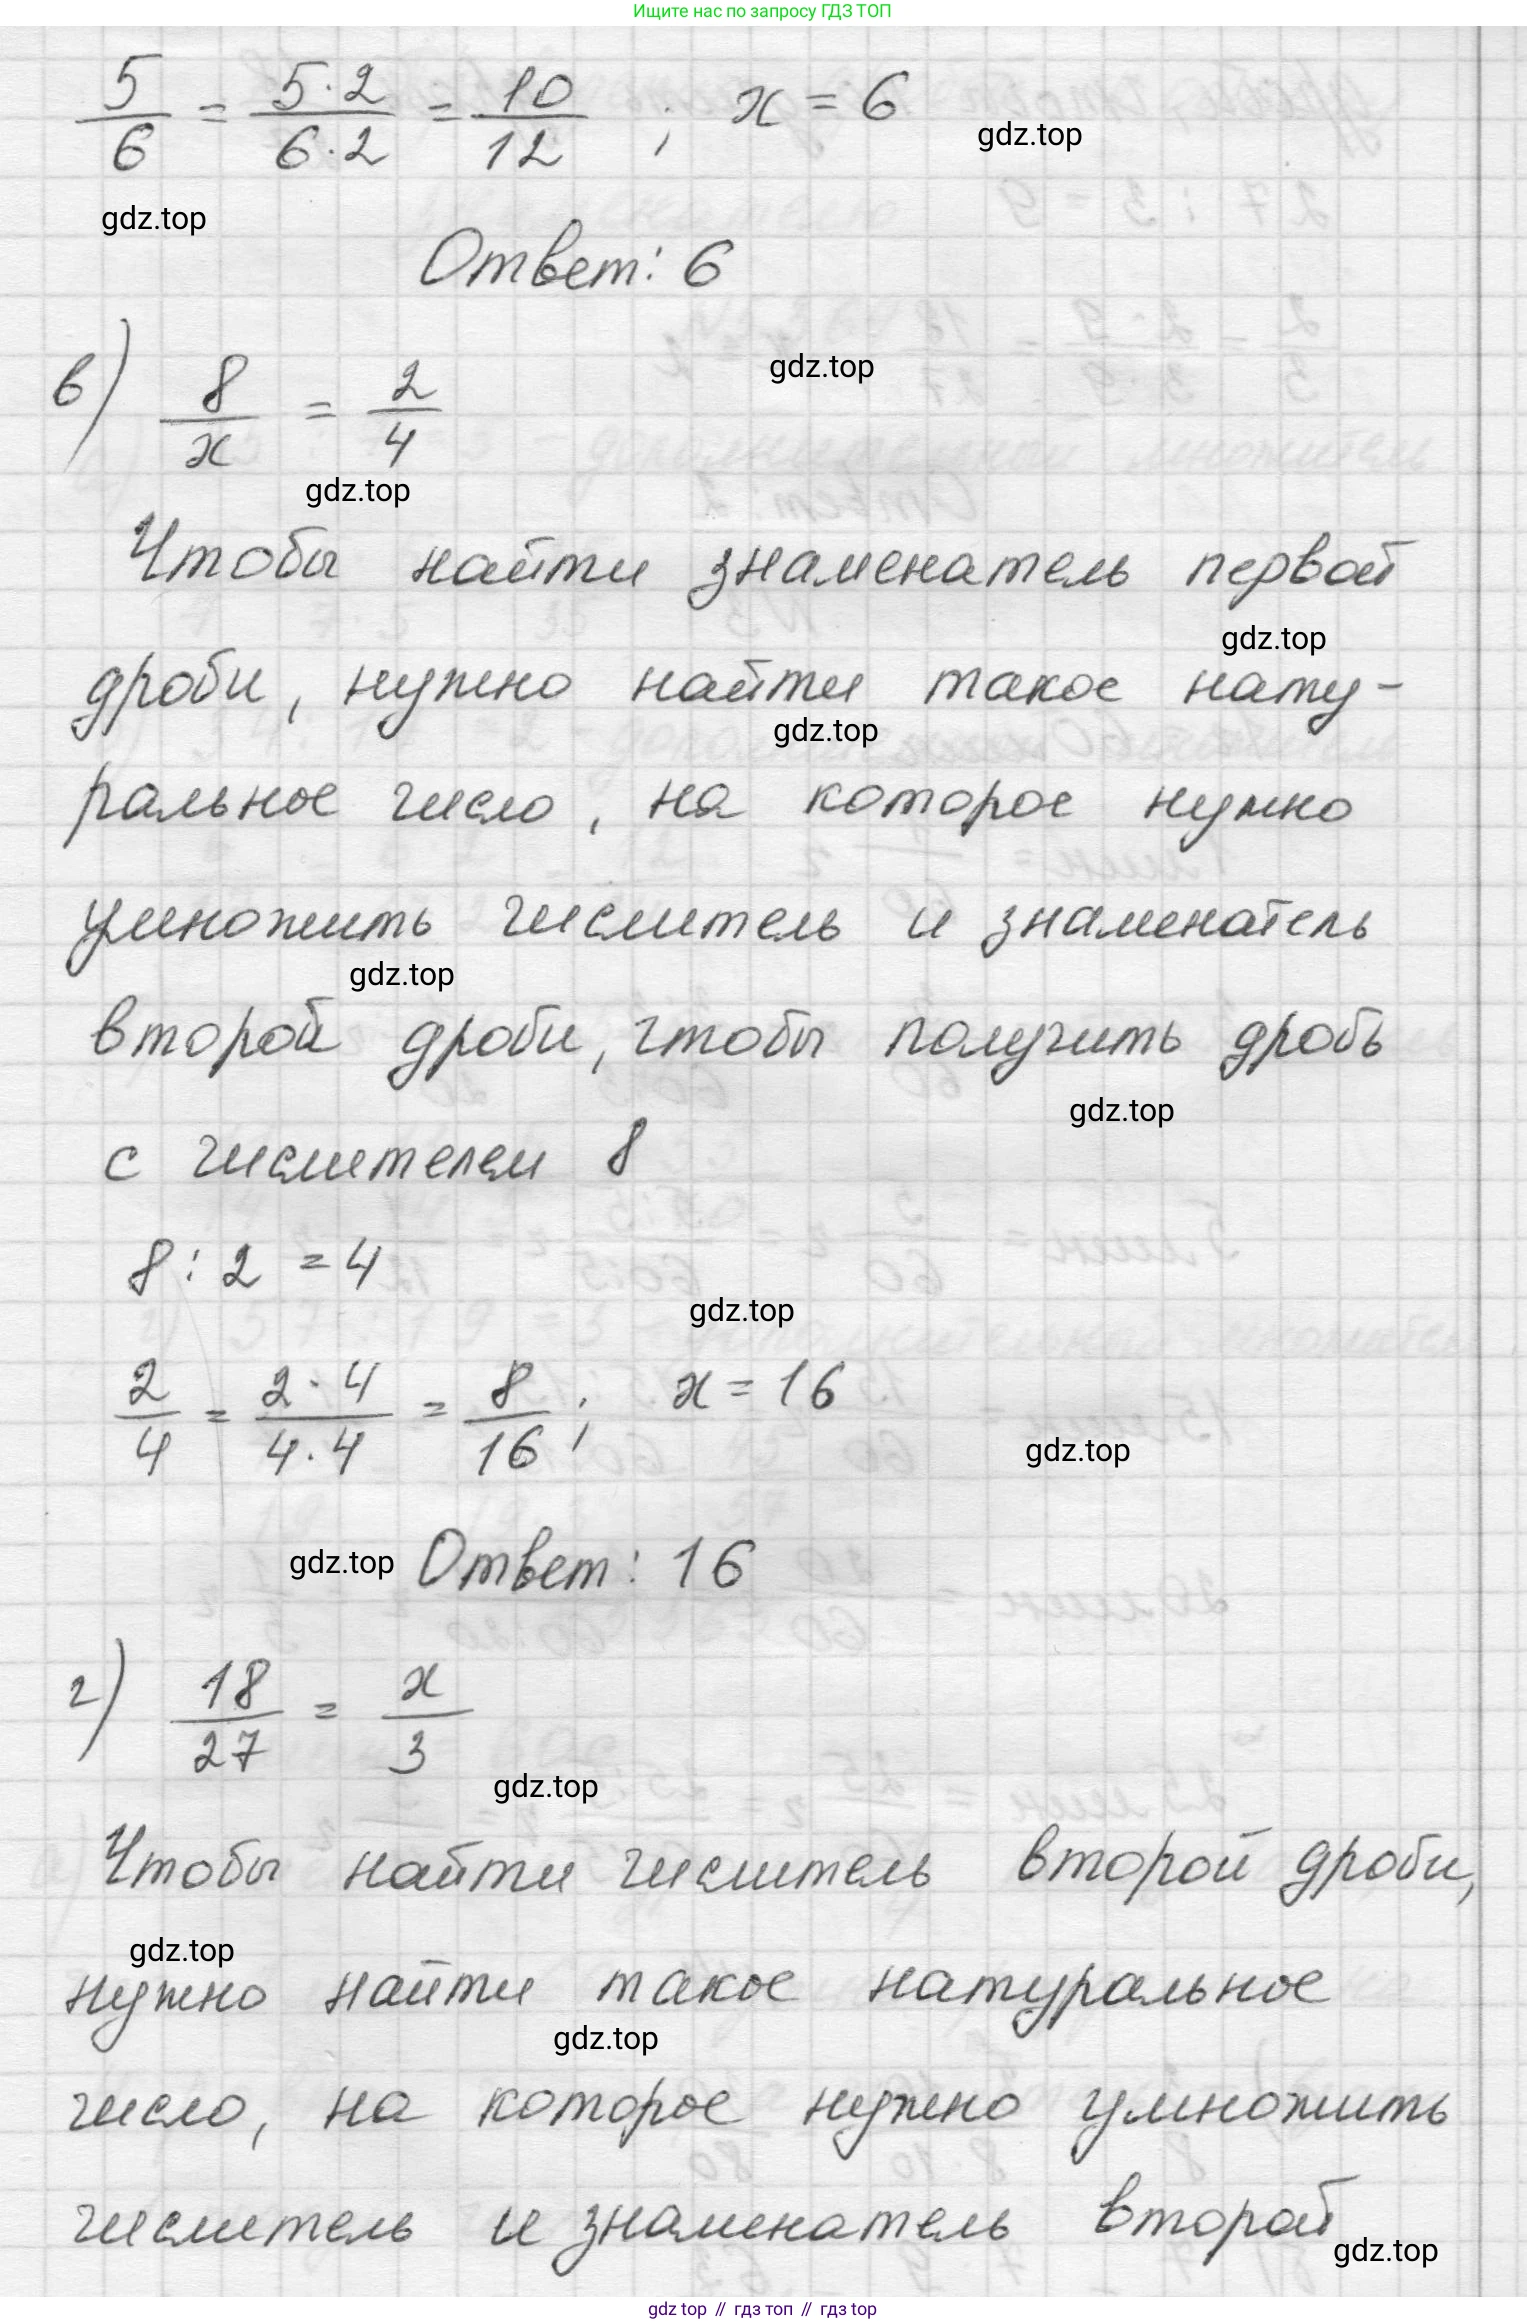 Ищите нас по запросу ГДЗ ТОП
5/6 = 5·2/6·2 = 10/12 ; x = 6
gdz.top
gdz.top
Ответ: 6
в) 8/x = 2/4
gdz.top
gdz.top
Чтобы найти знаменатель первой
gdz.top
дроби, нужно найти такое нату-
gdz.top
ральное число, на которое нужно
умножить числитель и знаменатель
gdz.top
второй дроби, чтобы получить дробь
gdz.top
с числителем 8
8 : 2 = 4
gdz.top
2/4 = 2·4/4·4 = 8/16 ; x = 16
gdz.top
gdz.top Ответ: 16
г) 18/27 = x/3
gdz.top
Чтобы найти числитель второй дроби,
gdz.top
нужно найти такое натуральное
gdz.top
число, на которое нужно умножить
числитель и знаменатель второй
gdz.top
gdz top // гдз топ // гдз top